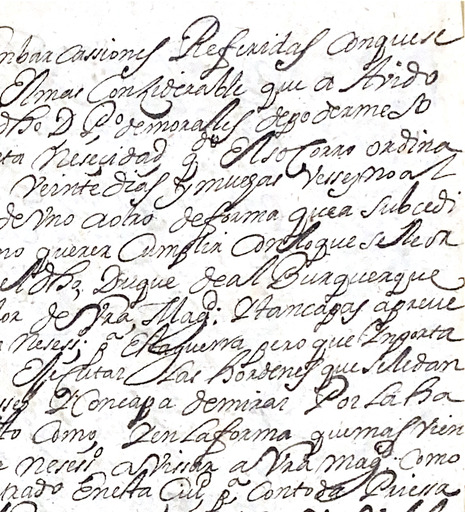 nbarcassiones Referidas Conquese
Elmas Considerable que a Avido
dho D P.o demorales depoderme So
ta Nesecidad q.e ElsoCorro ordina
Veinte dias y muchas Vesses no al
de Uno aotro deforma quea Subcedi
no querer Cumplir Conlo que se lleva
dho, Duque de alBurquerque
or de Vra, Mag.d:
nesess. p.a Laguerra, pero que Ynporta
Ejecutar Las hordenes que seledan
Concapa demirar Por La ha
to Como, Y en Laforma quemas Vien
Nesess.o aVissar a Vra Mag.d Como
trado Enesta Ciu.d p.a Contoda Priessa